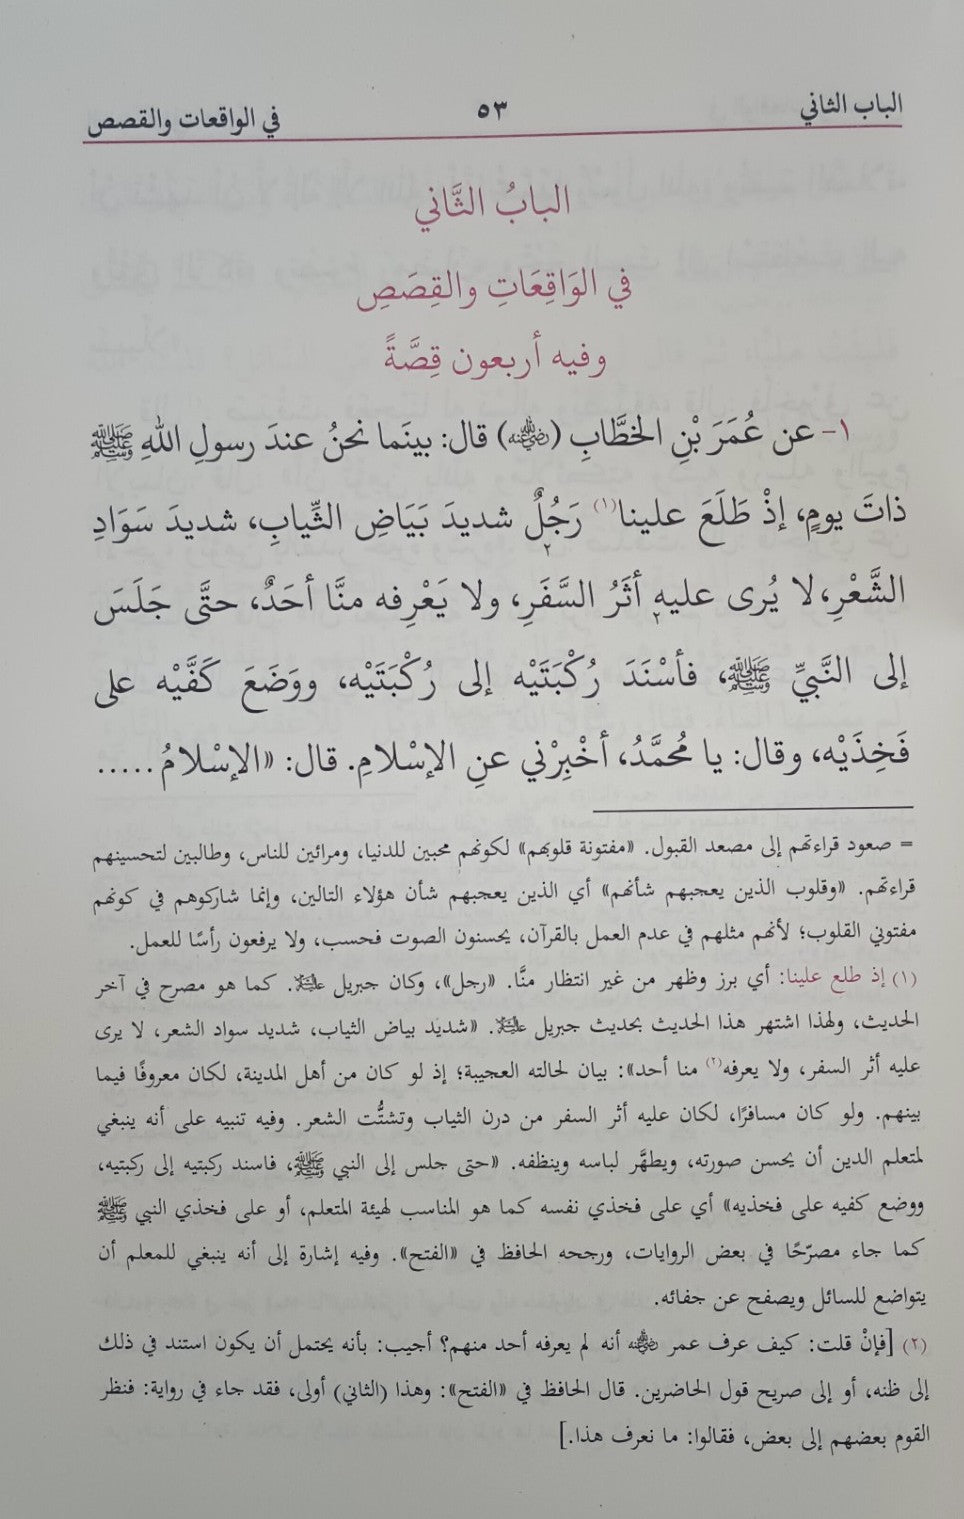 الباب الثاني ٥٣ في الواقعات والقصص
البابُ الثَّاني
في الوَاقِعَاتِ والقِصَصِ
وفيه أربعون قِصَّةً
١- عن عُمَرَ بْنِ الخطَّابِ (رضي الله عنه) قال: بينَما نحنُ عندَ رسولِ اللهِ ﷺ
ذاتَ يومٍ، إذْ طَلَعَ علينا(١) رَجُلٌ شديدَ بَيَاضِ الثِّيابِ، شديدَ سَوَادِ
الشَّعْرِ، لا يُرى عليه أثَرُ السَّفَرِ، ولا يَعْرِفه منَّا أحَدٌ، حتَّى جَلَسَ
إلى النَّبيِّ ﷺ، فأسْنَدَ رُكْبَتَيْه إلى رُكْبَتَيْه، ووَضَعَ كَفَّيْه على
فَخِذَيْه، وقال: يا مُحمَّدُ، أخْبِرْني عنِ الإسْلامِ. قال: «الإسْلامُ .....
= صعود قراءتهم إلى مصعد القبول. «مفتونة قلوبهم» لكونهم محبين للدنيا، ومرائين للناس، وطالبين لتحسينهم
قراءتهم. «وقلوب الذين يعجبهم شأنهم» أي الذين يعجبهم شأن هؤلاء التالين، وإنما شاركوهم في كونهم
مفتوني القلوب؛ لأنهم مثلهم في عدم العمل بالقرآن، يحسنون الصوت فحسب، ولا يرفعون رأسًا للعمل.
(١) إذ طلع علينا: أي برز وظهر من غير انتظار منَّا. «رجل»، وكان جبريل عليه السلام. كما هو مصرح في آخر
الحديث، ولهذا اشتهر هذا الحديث بحديث جبريل عليه السلام. «شديد بياض الثياب، شديد سواد الشعر، لا يرى
عليه أثر السفر، ولا يعرفه(٢) منا أحد»: بيان لحالته العجيبة؛ إذ لو كان من أهل المدينة، لكان معروفًا فيما
بينهم. ولو كان مسافرًا، لكان عليه أثر السفر من درن الثياب وتشتُّت الشعر. وفيه تنبيه على أنه ينبغي
لمتعلم الدين أن يحسن صورته، ويطهَّر لباسه وينظفه. «حتى جلس إلى النبي ﷺ، فاسند ركبتيه إلى ركبتيه،
ووضع كفيه على فخذيه» أي على فخذي نفسه كما هو المناسب لهيئة المتعلم، أو على فخذي النبي ﷺ
كما جاء مصرّحًا في بعض الروايات، ورجحه الحافظ في «الفتح». وفيه إشارة إلى أنه ينبغي للمعلم أن
يتواضع للسائل ويصفح عن جفائه.
(٢) [فإنْ قلت: كيف عرف عمر رضي الله عنه أنه لم يعرفه أحد منهم؟ أجيب: بأنه يحتمل أن يكون استند في ذلك
إلى ظنه، أو إلى صريح قول الحاضرين. قال الحافظ في «الفتح»: وهذا (الثاني) أولى، فقد جاء في رواية: فنظر
القوم بعضهم إلى بعض، فقالوا: ما نعرف هذا.]